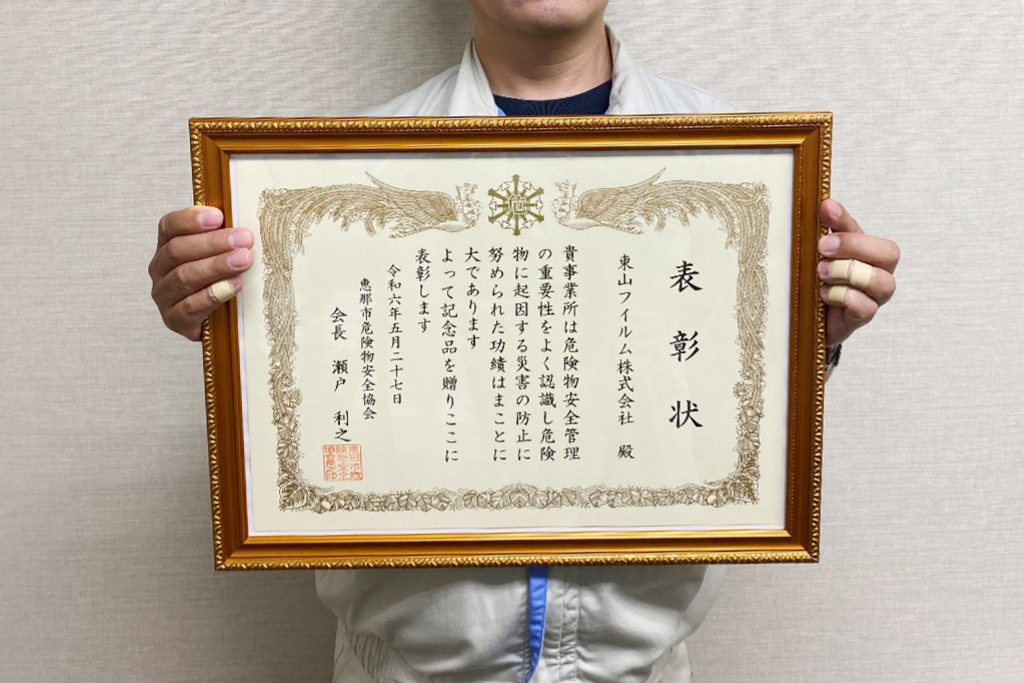 表彰状
東山フイルム株式会社 殿
貴事業所は危険物安全管理
の重要性をよく認識し危険
物に起因する災害の防止に
努められた功績はまことに
大であります
よって記念品を贈りここに
表彰します
令和六年五月二十七日
恵那市危険物安全協会
会長 瀬戸 利之